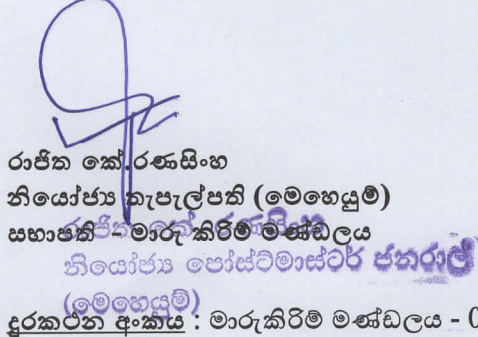 රාජිත කේ.රණසිංහ
නියෝජ්‍ය තැපැල්පති (මෙහෙයුම්)
සභාපති - මාරු කිරීම් මණ්ඩලය
රාජිත කේ. රණසිංහ
නියෝජ්‍ය පෝස්ට්මාස්ටර් ජනරාල්
(මෙහෙයුම්)
දුරකථන අංකය : මාරුකිරිම් මණ්ඩලය - 0